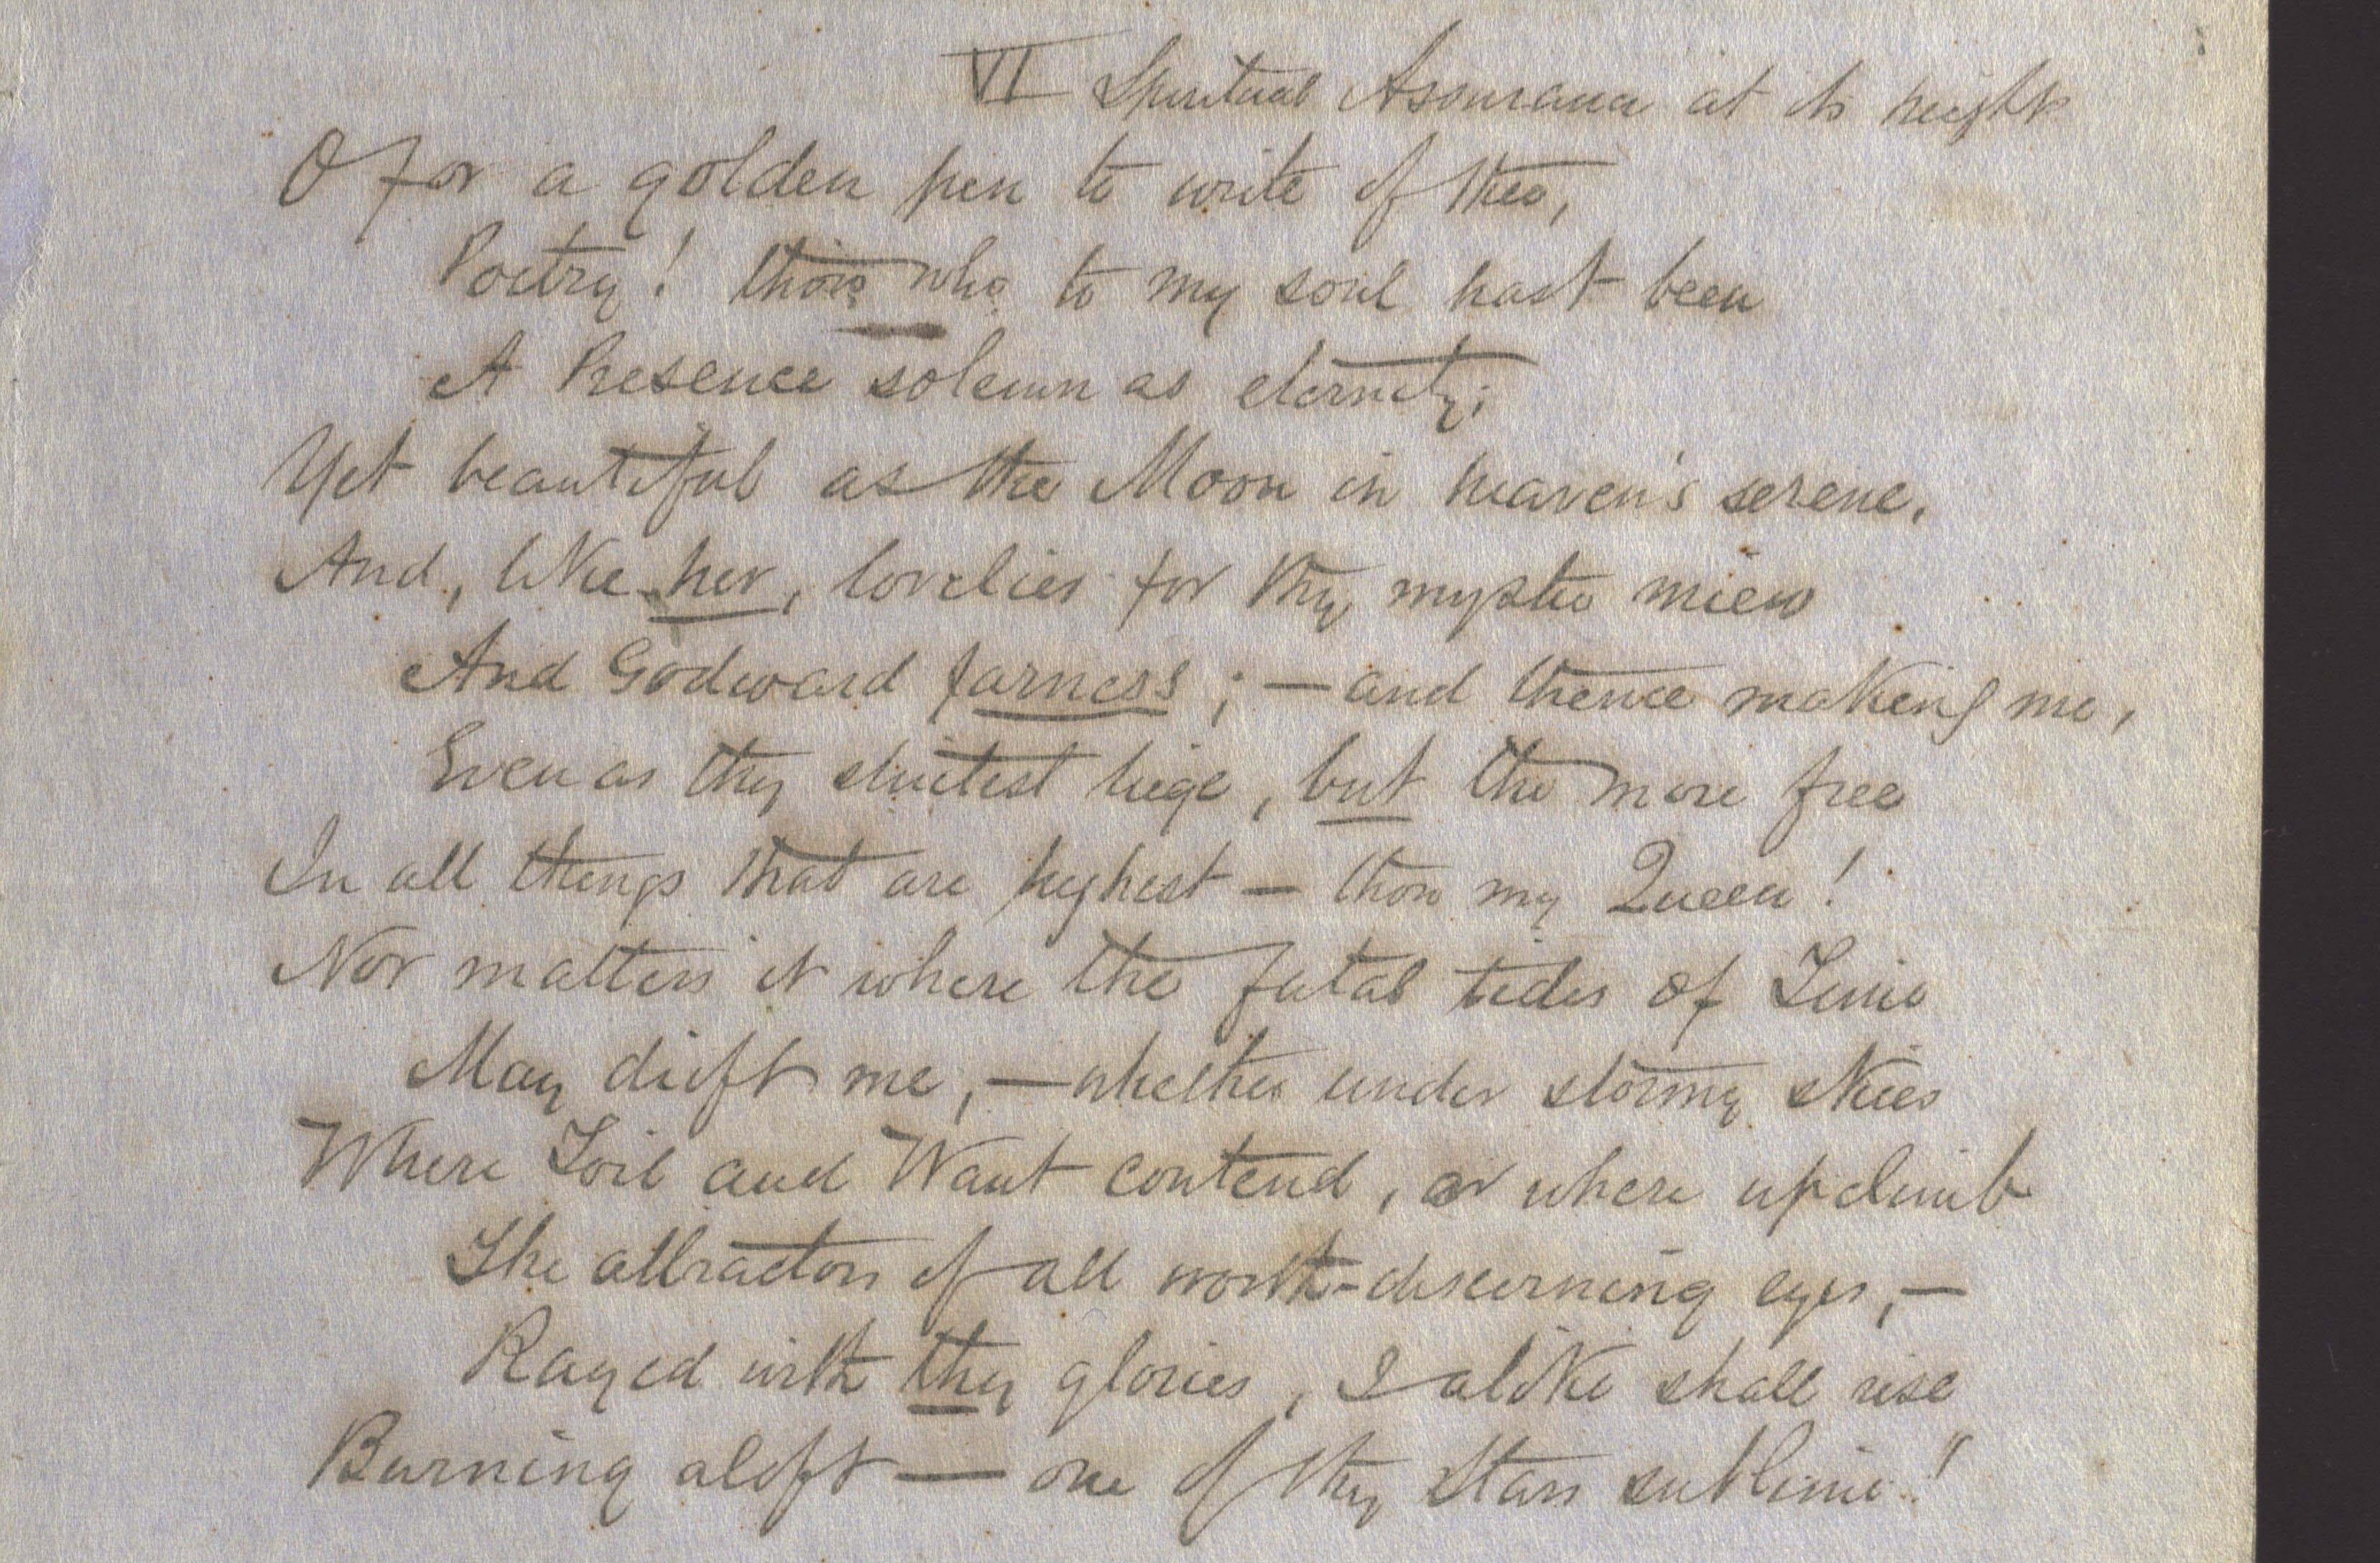 VI Spiritual Assurance at its height
O for a golden pen to write of thee,
Poetry! thou who to my soul hast been
A Presence solemn as eternity;
Yet beautiful as the Moon in heaven's serene,
And, like her, lovelier for thy mystic mien
And Godward farness; — and thence making me,
Even as thy strictest liege, but the more free
In all things that are highest — thou my Queen!
Nor matters it where the fatal tides of Time
May drift me, — whether under stormy skies
Where Toil and Want contend, or where upclimb
The attractors of all worth-discerning eyes, —
Rayed with thy glories, I alike shall rise
Burning aloft — one of thy Stars sublime!"